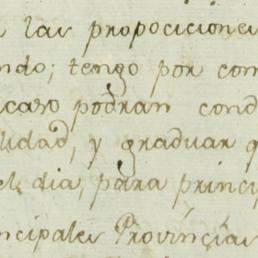 las proposiciones
ndo; tengo por con
caso podran cond
lidad, y graduar q
el dia, para princi
ncipales Provincias